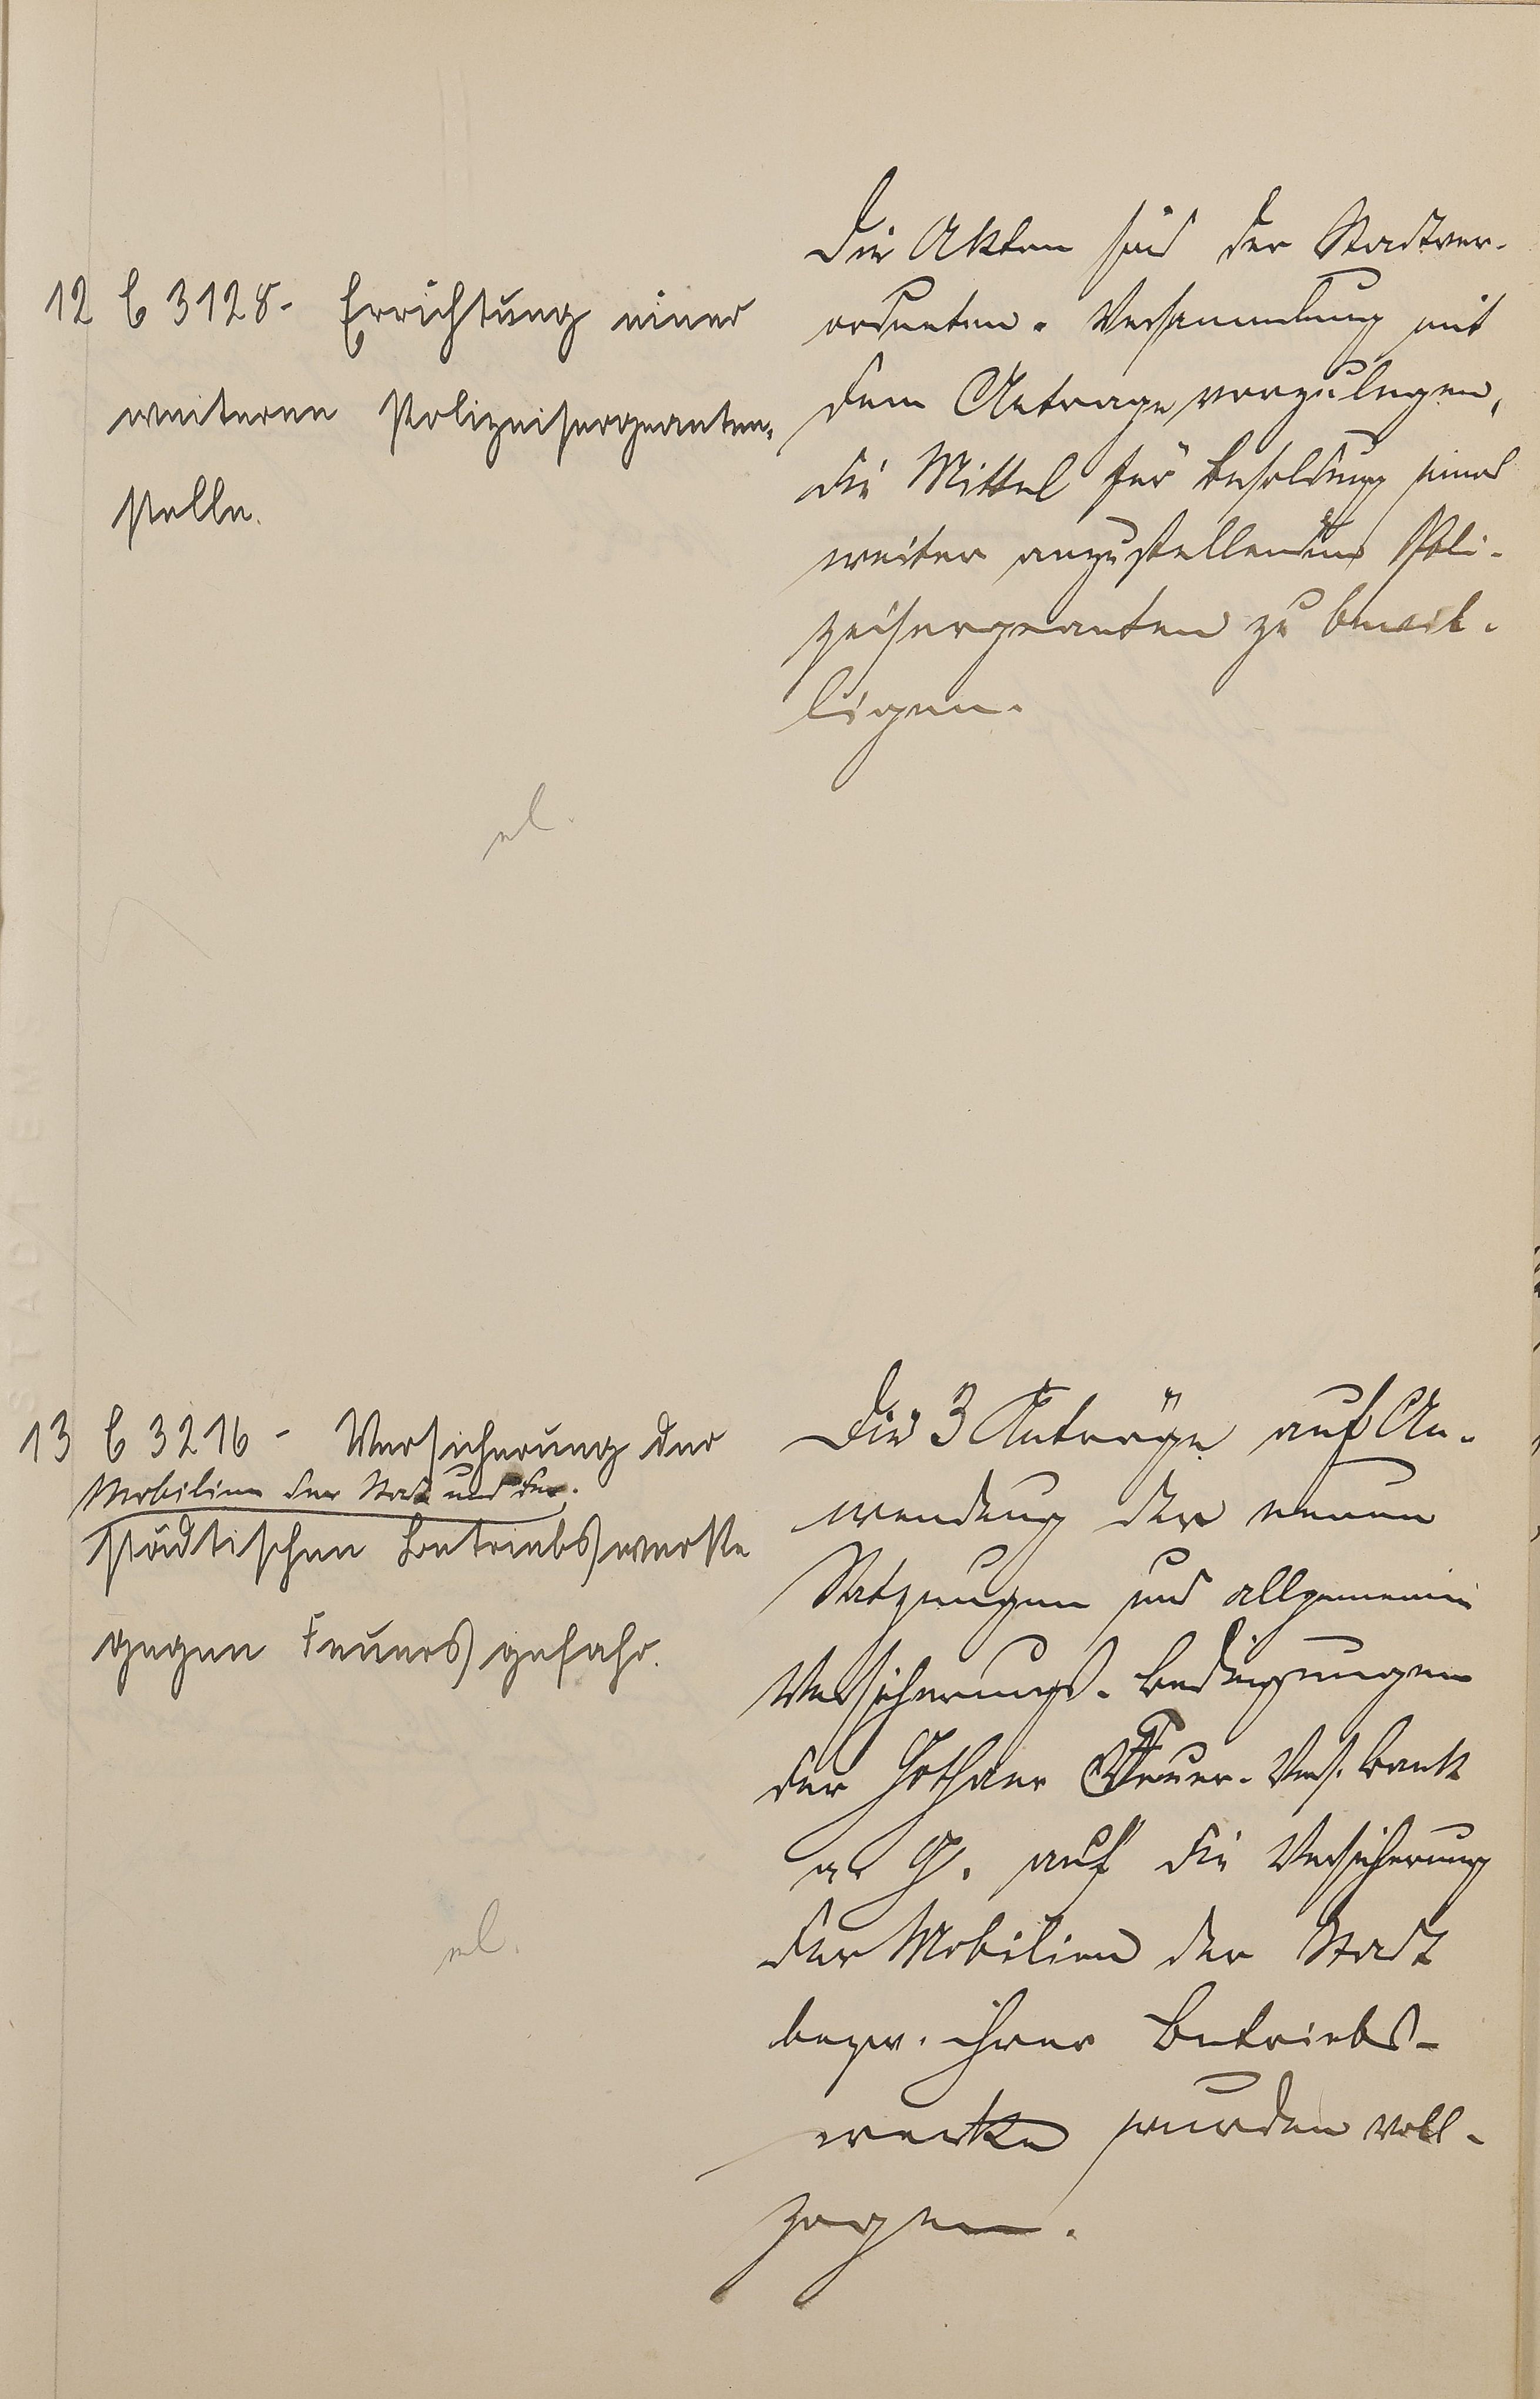 12 C 3128 - Errichtung einer
weiteren Polizeisergeanten-
stelle.
Die Akten sind der Stadtver-
ordneten-Versammlung mit
dem Antrage vorzulegen,
die Mittel für Besoldung eines
weiter anzustellenden Poli-
zeisergeanten zu bewil-
ligen.
13 C 3216 - Versicherung der
Mobilien der Stadt und der
städtischen Betriebswerke
gegen Feuersgefahr.
Die 3 Anträge auf An-
wendung der neuen
Satzungen und allgemeine
Versicherungs-Bedingungen
der Gothaer Feuer-Vers. Bank
a. G. auf die Versicherung
der Mobilien der Stadt
bezw. ihrer Betriebs-
werke wurden voll-
zogen.